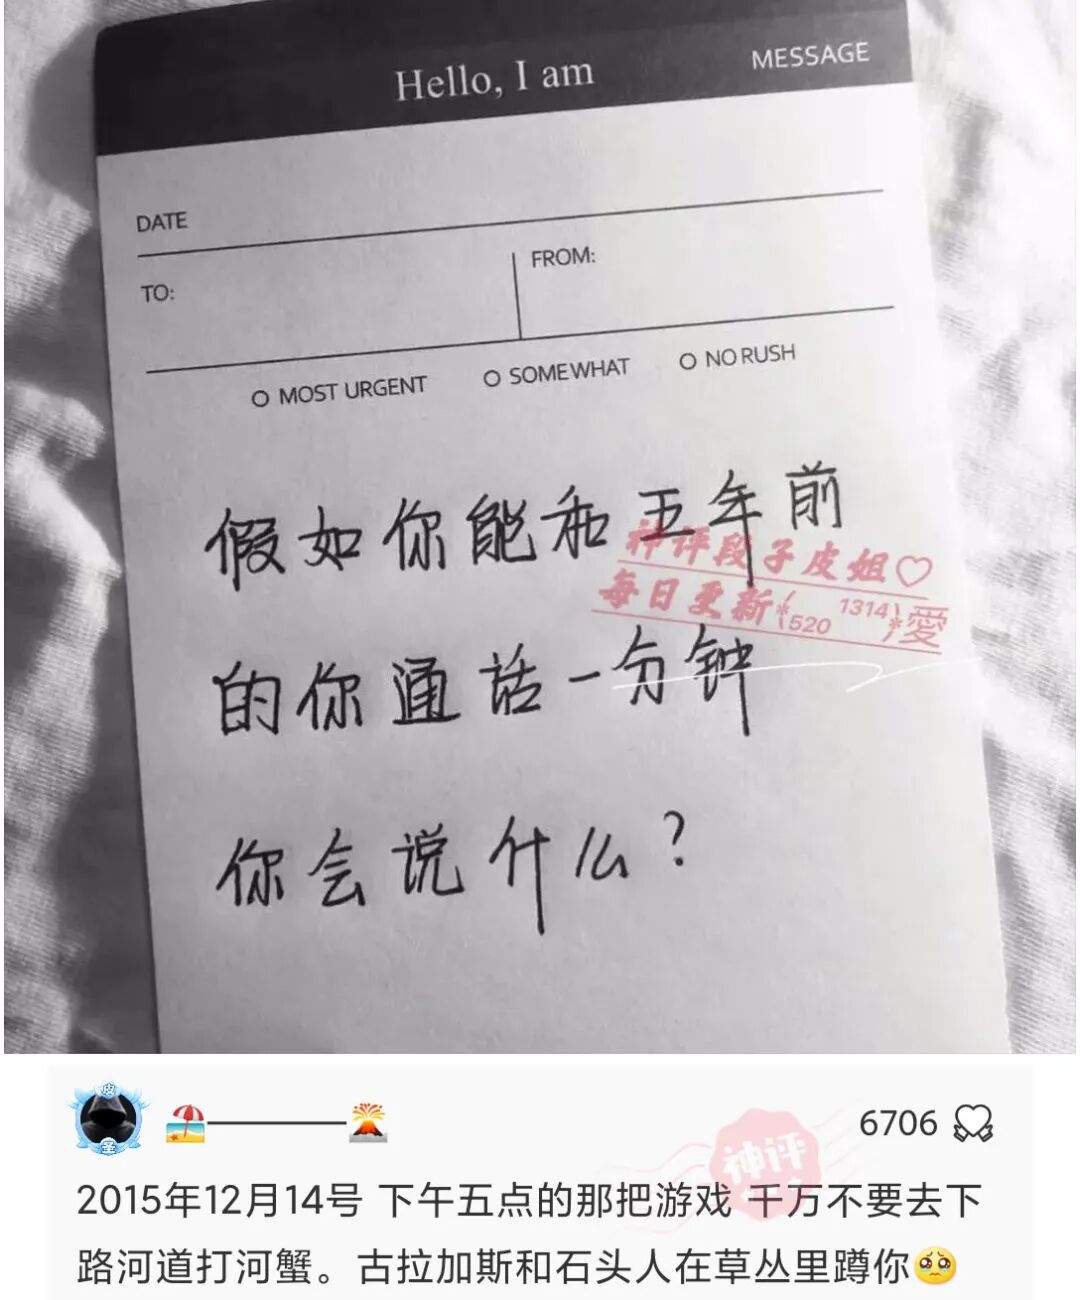 Hello, I am
MESSAGE
DATE
TO:
FROM:
MOST URGENT
SOMEWHAT
NO RUSH
假如你能和五年前
神评段子皮姐♡
每日更新 520 1314 愛
的你通话一分钟
你会说什么?
皮
圣
6706
神评
2015年12月14号 下午五点的那把游戏 千万不要去下
路河道打河蟹。古拉加斯和石头人在草丛里蹲你🥺